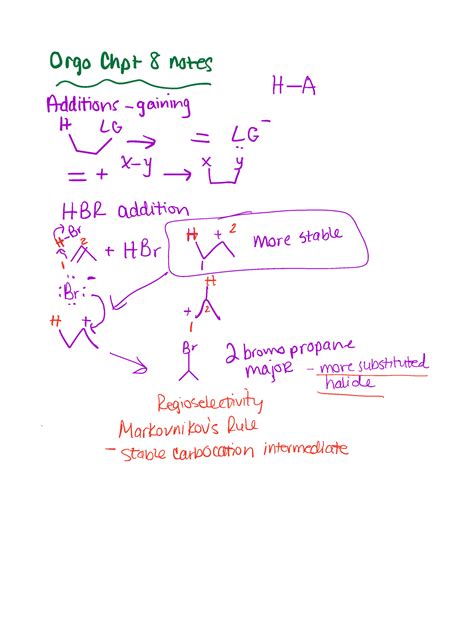 Orgo Chpt 8 notes
H—A
Additions – gaining
H LG → = LG:⁻
= + x–y → x y
HBR addition
H–Br
2 + HBr
1
H + 2 more stable
1
:Br:⁻
H
+ 2
1
H +
Br
2 bromo propane
major – more substituted
halide
Regioselectivity
Markovnikov's Rule
– stable carbocation intermediate